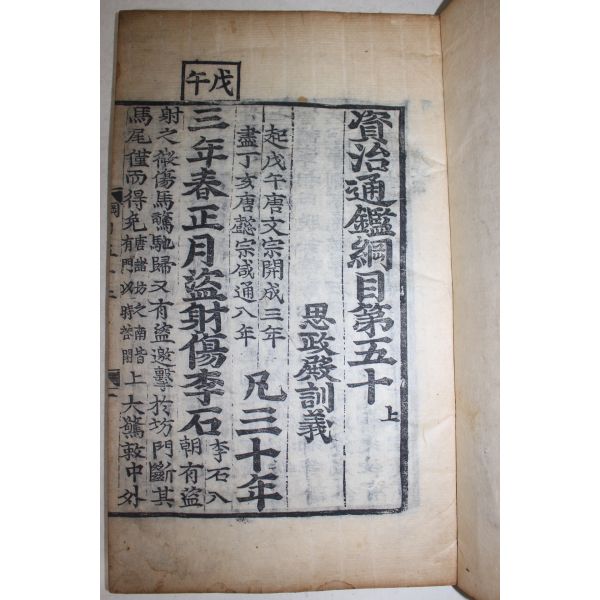 戊午
資治通鑑綱目第五十 上
思政殿訓義
起戊午唐文宗開成三年
盡丁亥唐懿宗咸通八年
凡三十年
三年春正月盜射傷李石
李石入
朝有盜
射之微傷馬驚馳歸又有盜邀擊於坊門斷其
馬尾僅而得免唐諸坊之南皆有門以時啓閉上大驚敕中外